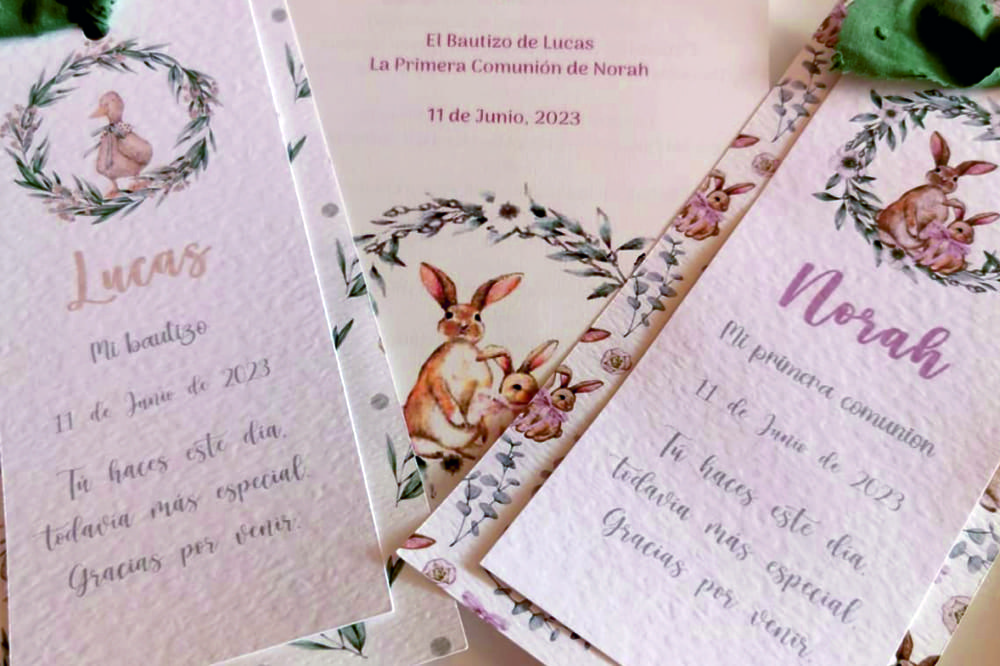 El Bautizo de Lucas
La Primera Comunión de Norah
11 de Junio, 2023
Lucas
Mi bautizo
11 de Junio de 2023
Tú haces este día,
todavía más especial.
Gracias por venir.
Norah
Mi primera comunion
11 de Junio de 2023
Tú haces este día,
todavía más especial.
Gracias por venir